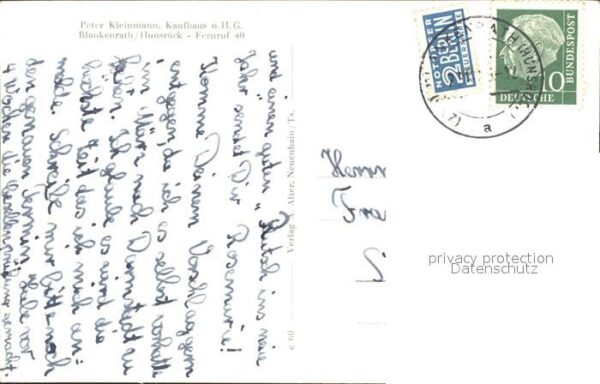 Peter Kleinmann, Kaufhaus o.H.G.
Blankenrath/Hunsrück - Fernruf 40
und einen guten „Rutsch ins neue
Jahr sendet Dir Rosemarie!
Komme Deinem Vorschlag gern
entgegen, da ich es selbst vorhatte
im März nach Darmstadt zu
fahren. Ich glaube es wird die
höchste Zeit das ich mich an-
melde. Schreibe mir bitte noch
den genauen Termin. Habe vor
4 Wochen die Gesellenprüfung gemacht.
e 60 Verlag A. Alter, Neuenhain/Ts.
NOTOPFER
2 BERLIN
STEUERMARKE
10
DEUTSCHE BUNDESPOST
a
Herrn
Fra
privacy protection
Datenschutz